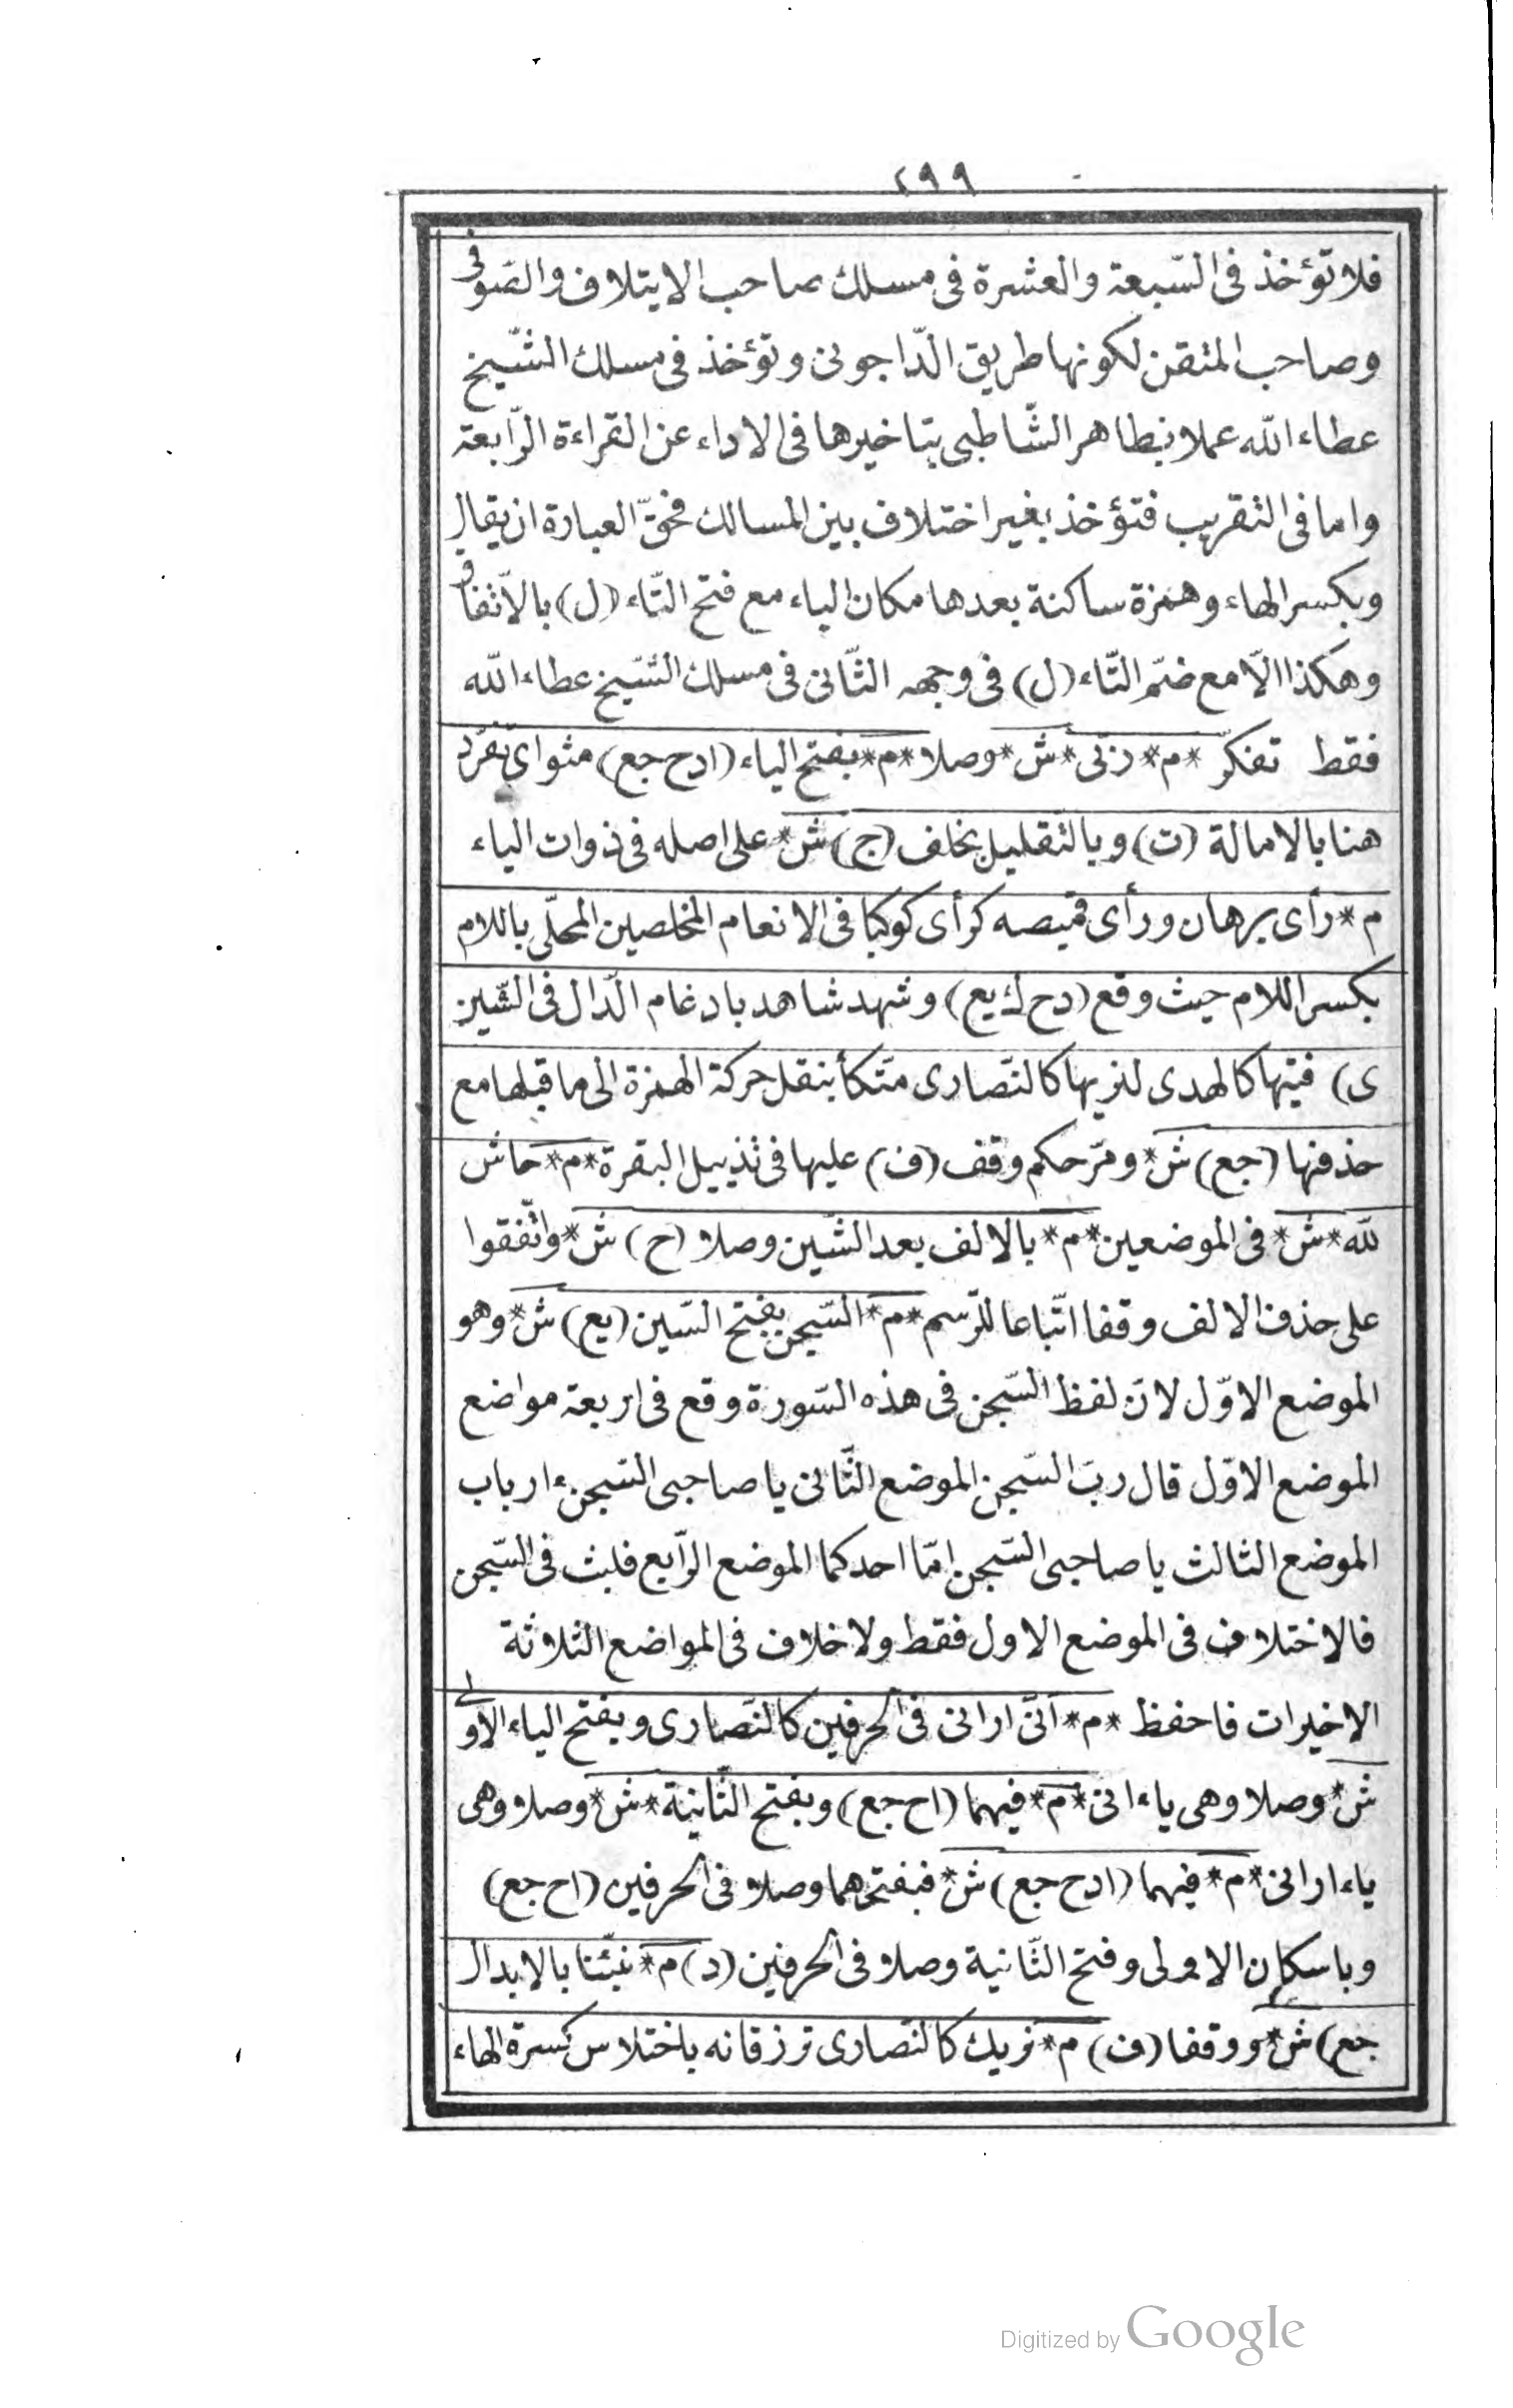 ٢٩٩
فلا تؤخذ فى السّبعة والعشرة فى مسلك صاحب الايتلاف والصّوفى
وصاحب المتقن لكونها طريق الدّاجونى وتؤخذ فى مسلك الشّيخ
عطاء الله عملا بظاهر الشّاطبى بتاخيرها فى الاداء عن القراءة الرّابعة
واما فى التقريب فتؤخذ بغير اختلاف بين المسالك فحقّ العبارة ان يقال
وبكسر الهاء وهمزة ساكنة بعدها مكان الياء مع فتح التّاء (ل) بالاتّفاق
وهكذا الّا مع ضمّ التّاء (ل) فى وجهه الثّانى فى مسلك الشّيخ عطاء الله
فقط تفكرّ *م* ربّى *ش* وصلا *م* بفتح الياء (ادح جع) مثواىّ تفرّد
هنا بالامالة (ت) وبالتقليل بخلف (ج) ش* على اصله فى ذوات الياء
م* رأى برهان ورأى قميصه كرأى كوكبا فى الانعام المخلصين المحلّى باللام
بكسر اللام حيث وقع (دح ك يع) وشهد شاهد بادغام الدّال فى الشّين
ى) فتيها كالهدى لنريها كالنّصارى متّكأ بنقل حركة الهمزة الى ما قبلها مع
حذفها (جع) ش* ومرّ حكم وقف (ف) عليها فى تذييل البقرة *م* حاش
لله *ش* فى الموضعين *م* بالالف بعد الشّين وصلا (ح) ش* واتّفقوا
على حذف الالف وقفا اتّباعا للرّسم *م* السّجن بفتح السّين (يع) ش* وهو
الموضع الاوّل لانّ لفظ السّجن فى هذه السّورة وقع فى اربعة مواضع
الموضع الاوّل قال ربّ السّجن الموضع الثّانى يا صاحبى السّجن ءارباب
الموضع الثالث يا صاحبى السّجن امّا احدكما الموضع الرّابع فلبث فى السّجن
فالاختلاف فى الموضع الاول فقط ولا خلاف فى المواضع الثلاثة
الاخيرات فاحفظ *م* انّى ارانى فى الحرفين كالنّصارى وبفتح الياء الاولى
ش* وصلا وهى ياء انى *م* فيهما (اح جع) وبفتح الثّانية *ش* وصلا وهى
ياء ارانى *م* فيهما (ادح جع) ش* فبفتحهما وصلا فى الحرفين (اح جع)
وباسكان الاولى وفتح الثّانية وصلا فى الحرفين (د) م* نبّئنا بالابدال
جع) ش* ووقفا (ف) م* نريك كالنّصارى ترزقانه باختلاس كسرة الهاء
Digitized by Google